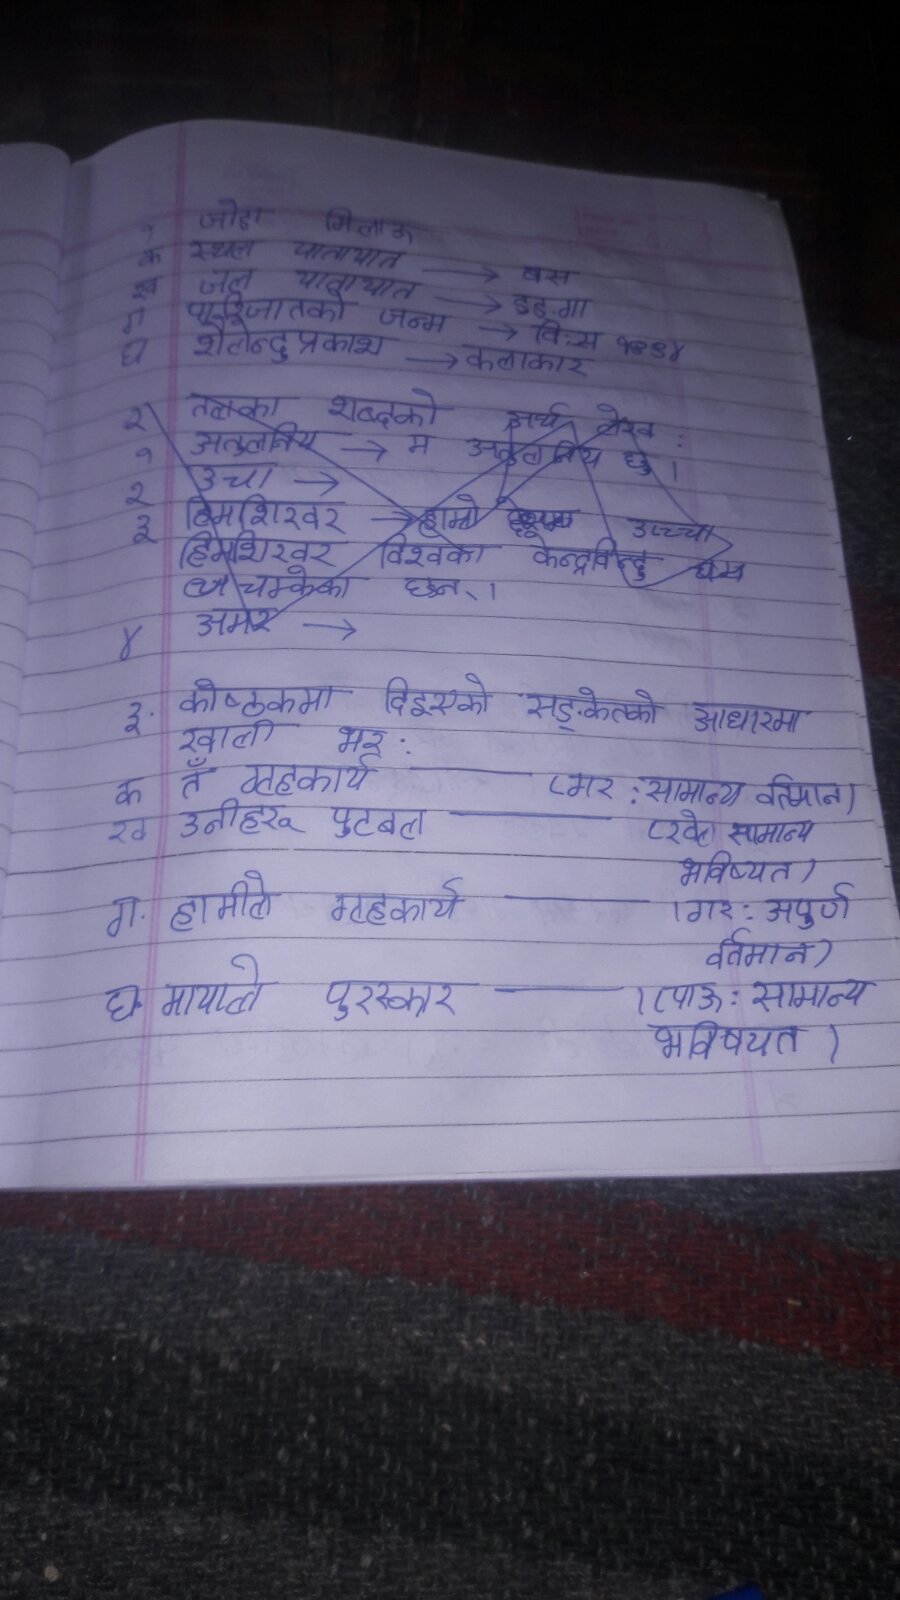 १ जोडा मिलाऊ
क स्थल यातायात → बस
ख जल यातायात → डुङ्गा
ग पारिजातको जन्म → वि:स १९९४
घ शैलेन्दुप्रकाश → कलाकार
२ तलका शब्दको अर्थ लेख :
१ अतुलनिय → म अतुलनिय छु।
२ उचा →
३ हिमशिखर → हाम्रो उच्चा
हिमशिखर विश्वका केन्द्रविन्दु
चम्केका छन्।
४ अमर →
३. कोष्ठकमा दिइएको सङ्केतको आधारमा
खाली भर :
क तँ गृहकार्य ——— (गर : सामान्य वर्तमान)
ख उनीहरू फुटबल ——— (खेल सामान्य
भविष्यत)
ग. हामीले गृहकार्य ——— (गर : अपुर्ण
वर्तमान)
घ मायाले पुरस्कार ——— । (पाऊ : सामान्य
भविषयत)